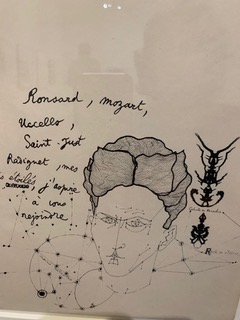 Ronsard, Mozart,
Uccello,
Saint-Just
Radiguet, mes
étoilés
j'aspire
à vous
rejoindre